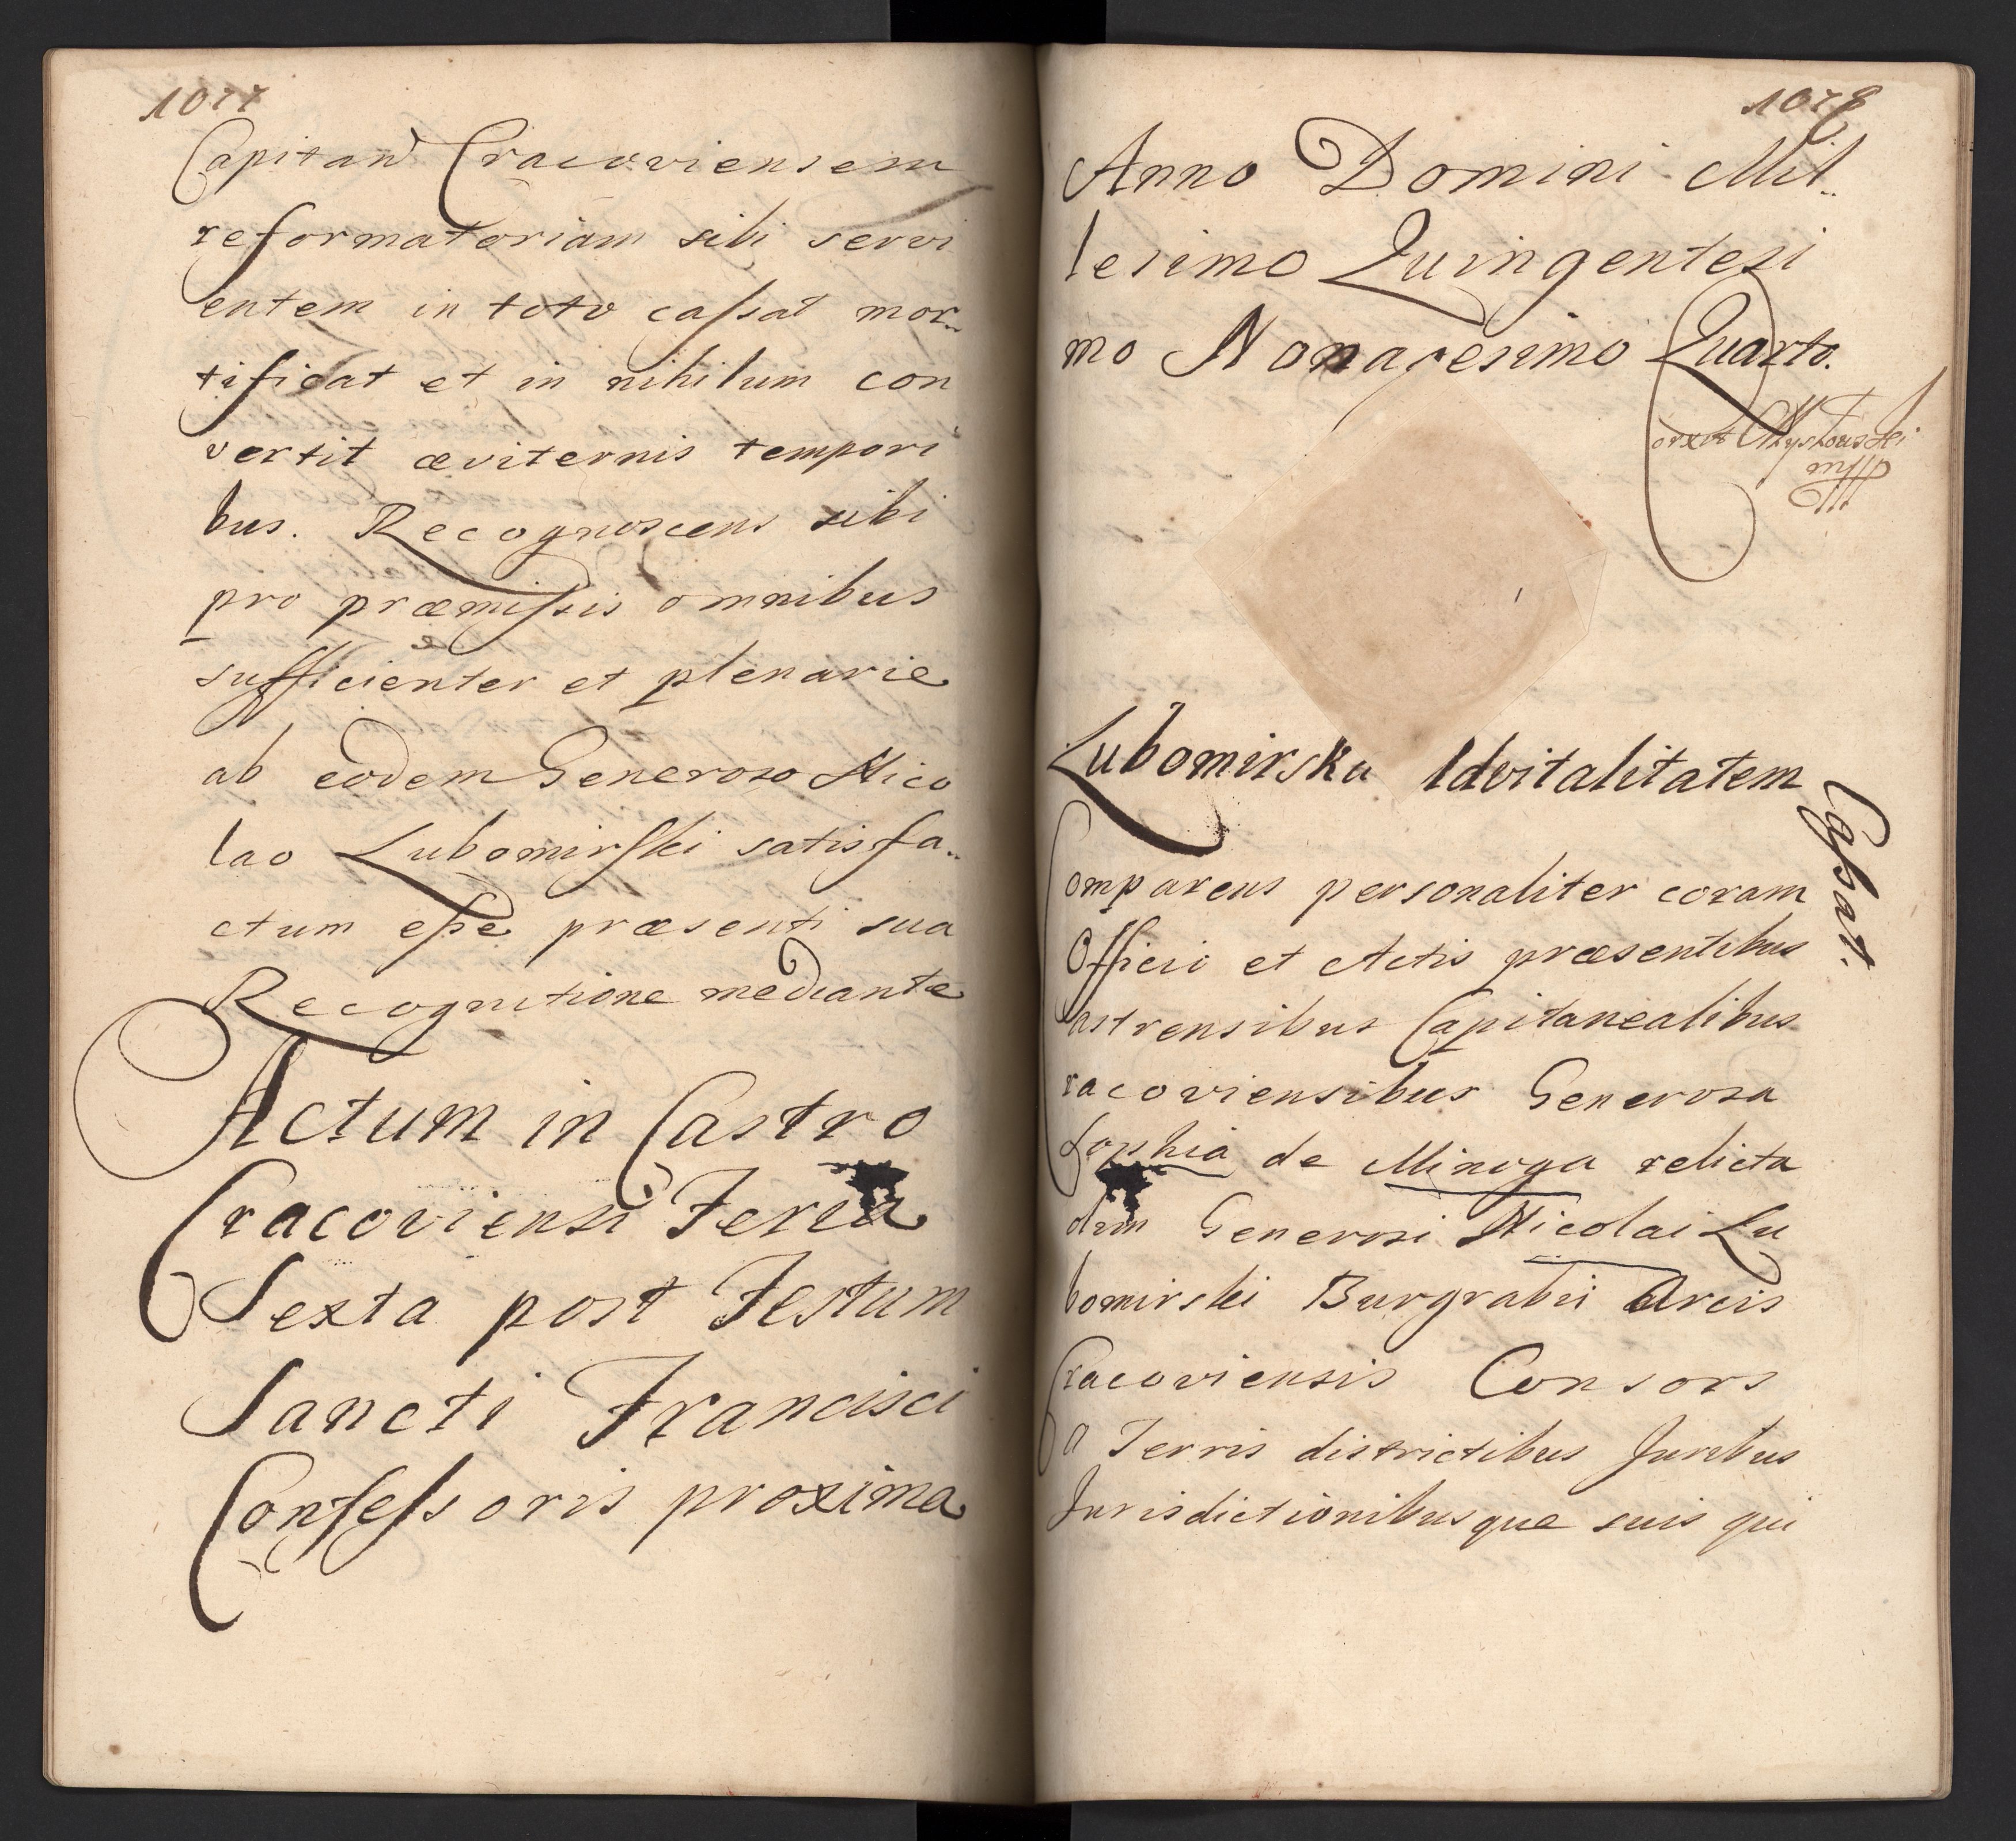 1077
Capitan̄ Cracoviensem
reformatoriam sibi servi
entem in toto caſsat mor„
tificat et in nihilum con
vertit æviternis tempori
bus. Recognoscens sibi
pro præmiſsis omnibus
sufficienter et plenarie
ab eodem Generoso Nico
lao Lubomirſki satisfa„
ctum eſse præsenti sua
Recognitione mediante
Actum in Castro
Cracoviensi Feria
Sexta post Festum
Sancti Francisci
Confeſsoris proxima
1078
Anno Domini Mil„
lesimo Quingentesi
mo Nonagesimo Quarto.
Lubomirska Advitalitatem
Caſsat.
Comparens personaliter coram
Officio et Actis præsentibus
Castrensibus Capitanealibus
Cracoviensibus Generosa
Sophia de Minoga relicta
olim Generosi Nicolai Lu
bomirski Burgrabii Arcis
Cracoviensis Consors
a Terris districtibus Juribus
Jurisdictionibusque suis qui